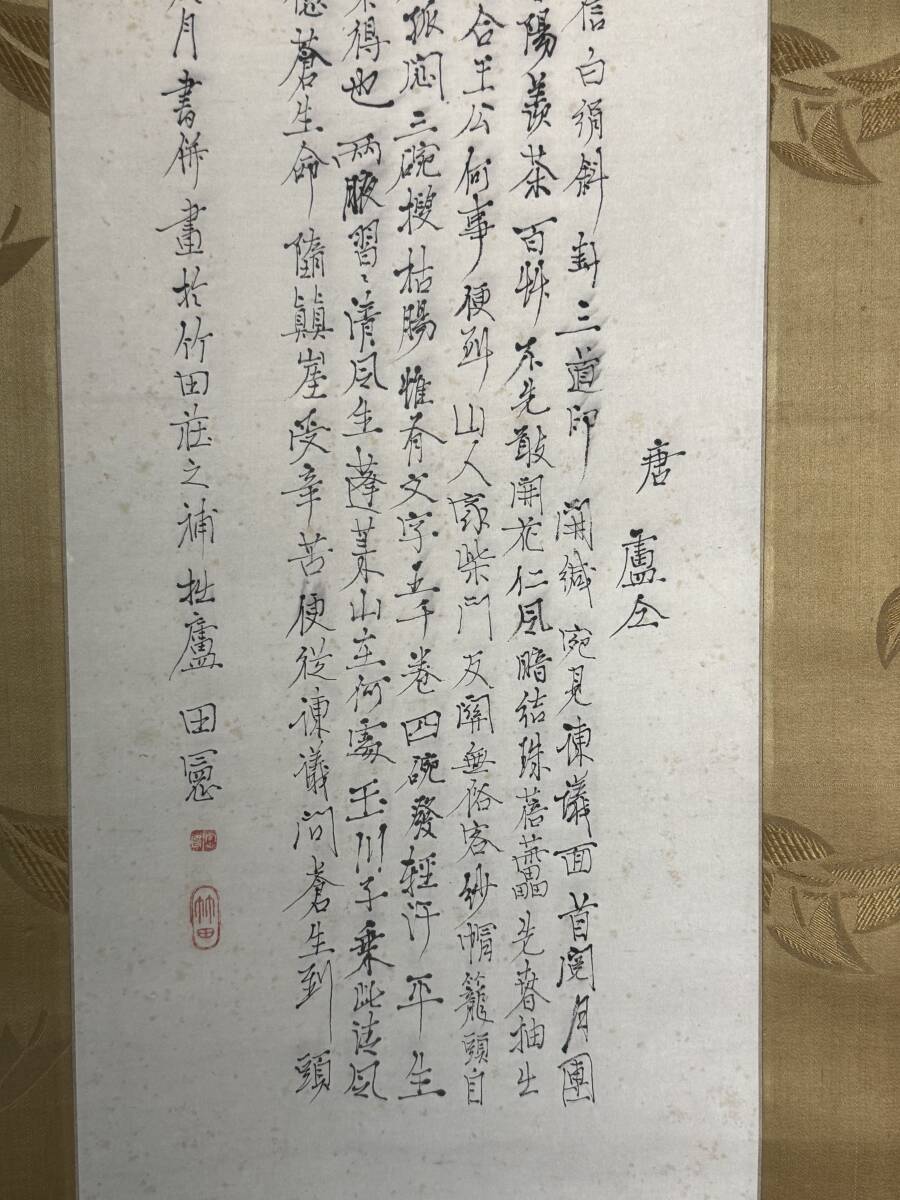 唐 盧仝
信白絹斜封三道印開緘宛見諫議面首閱月團
陽羨茶百艸不先敢開花仁風暗結珠蓓蕾先春抽出
合王公何事便到山人家柴門反關無俗客紗帽籠頭自
孤悶三碗搜枯腸惟有文字五千卷四碗發輕汗平生
得也兩腋習〻清風生蓬萊山在何處玉川子乘此清風
億蒼生命隨顛崖受辛苦便從諫議問蒼生到頭
月書併畫於竹田莊之補拙廬 田憲
竹田